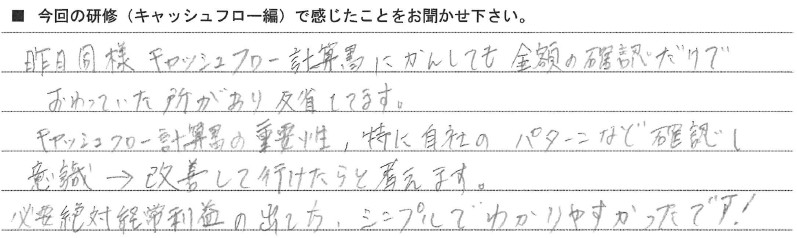 ■ 今回の研修（キャッシュフロー編）で感じたことをお聞かせ下さい。
昨日同様 キャッシュフロー計算書にかんしても 金額の確認だけで
おわっていた所があり 反省してます。
キャッシュフロー計算書の重要性，特に自社の パターンなど確認し
意識→改善して行けたらと考えます。
必要絶対経常利益の出し方、シンプルでわかりやすかったです!